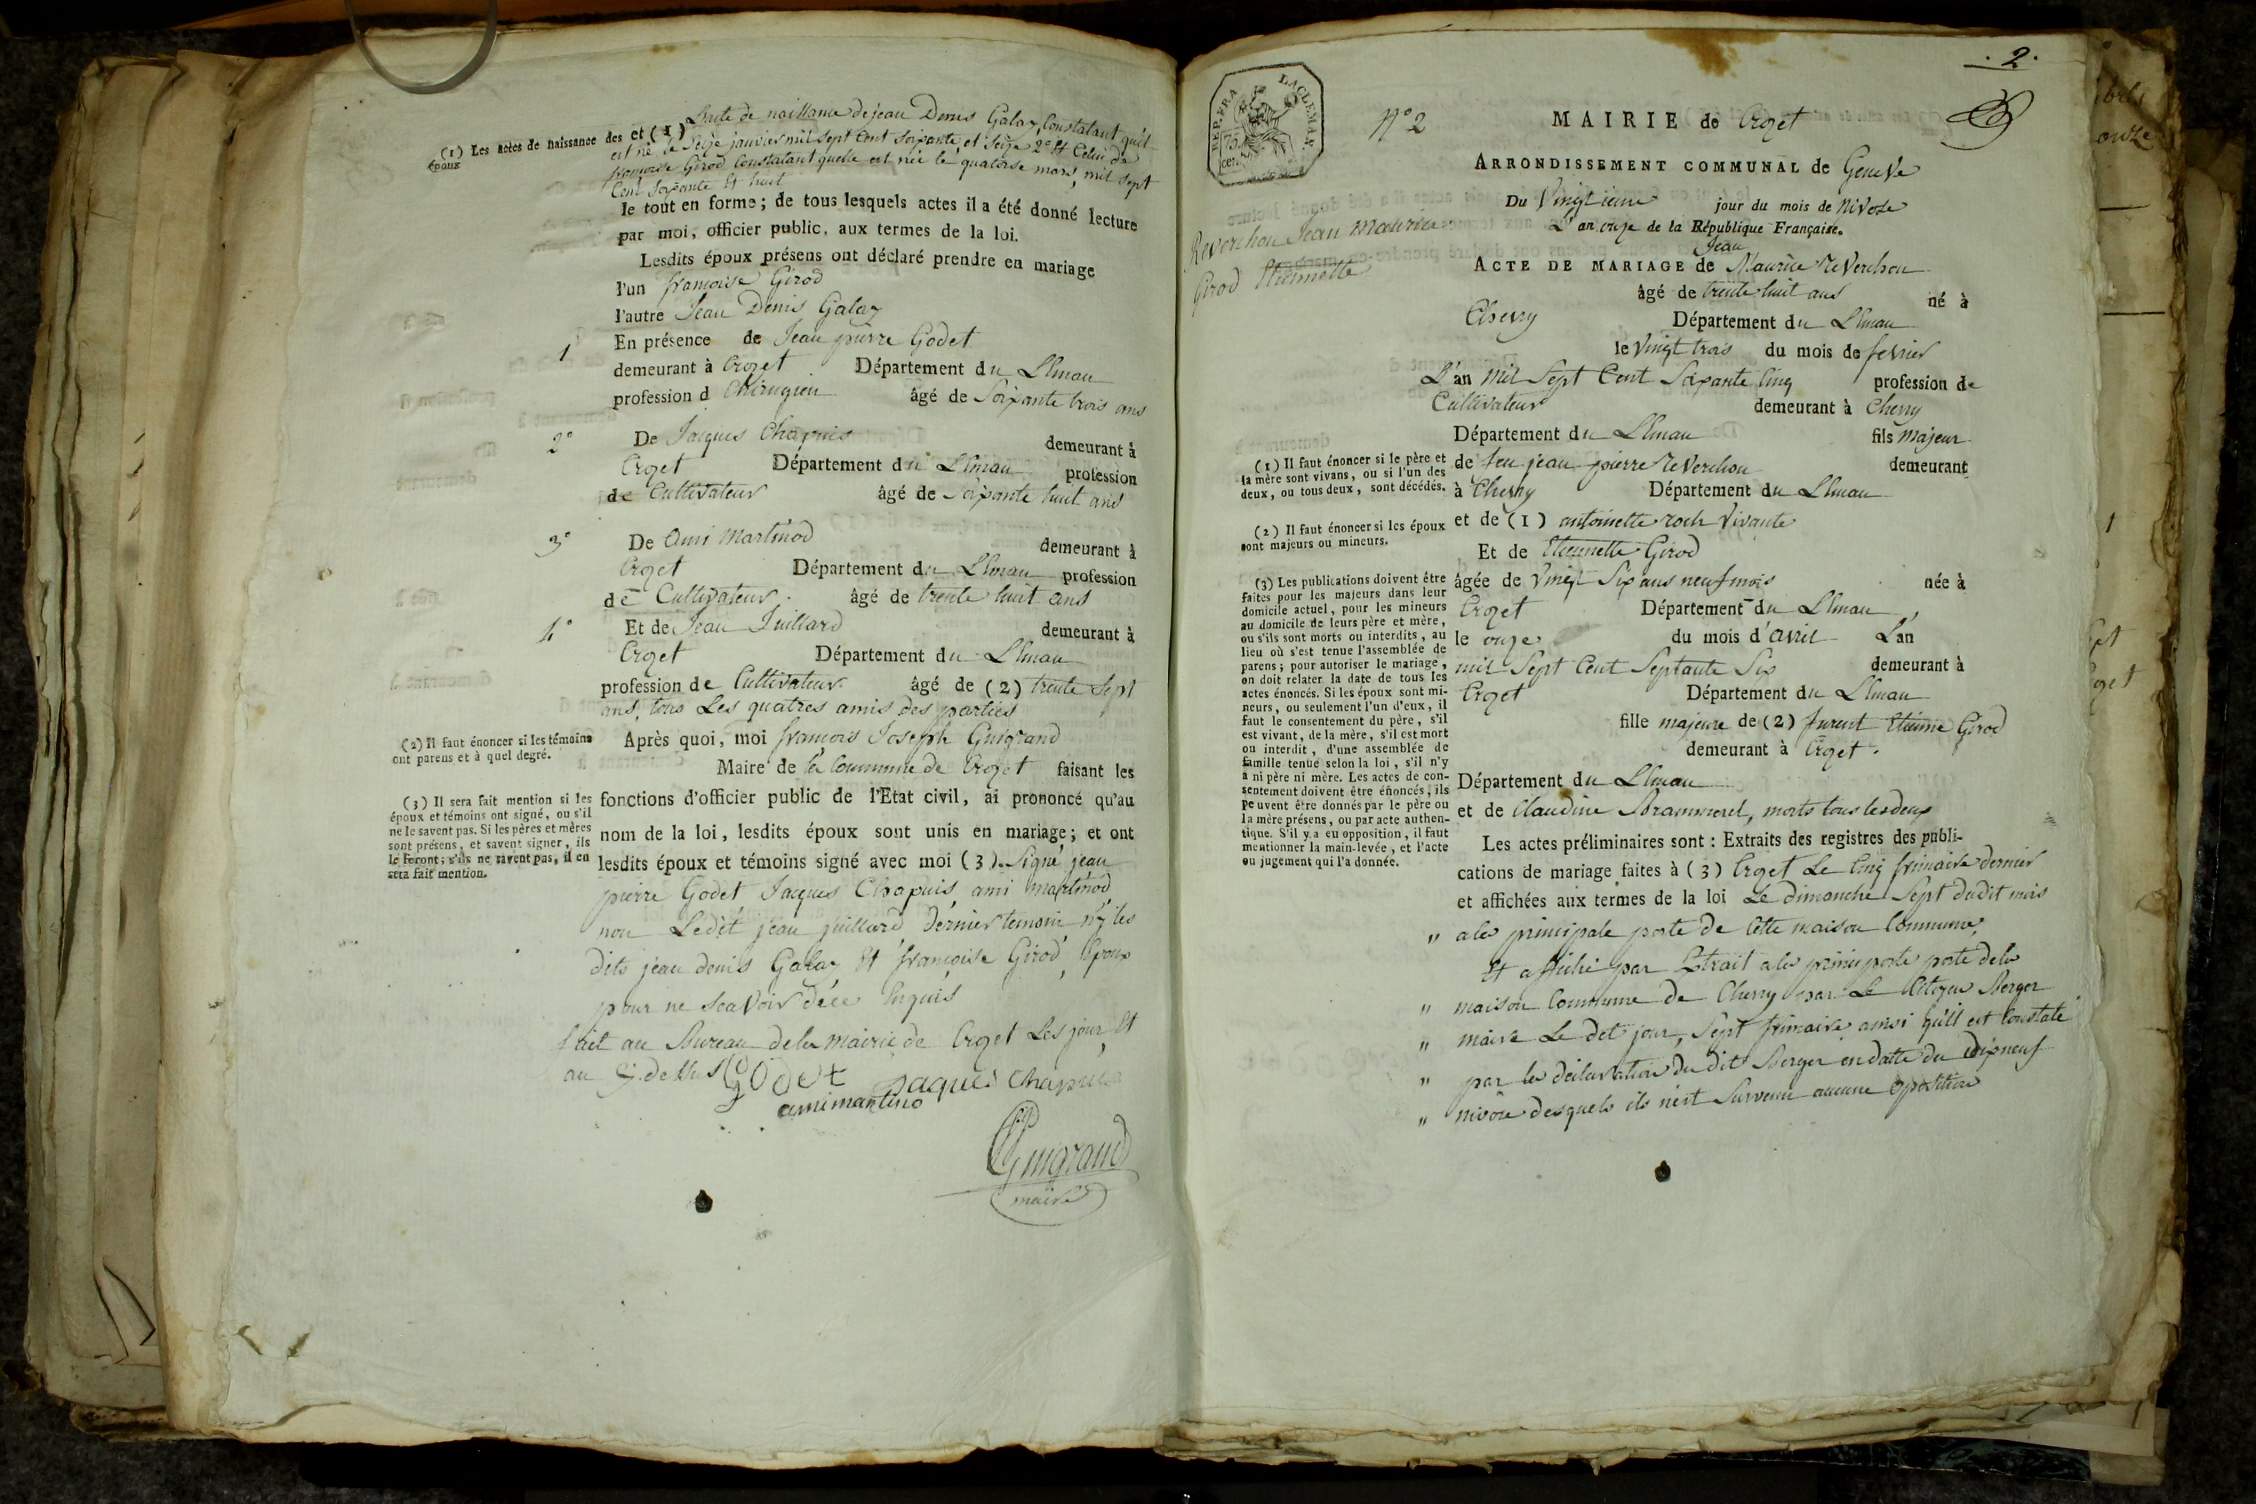 (1) Les actes de naissance des
époux
et (1) Lacte de naissance de jean Denis Galay, Constatant qu'il
est né le Seize janvier mil sept Cent soixante et seize 2° Et Celui de
françoise Girod Constatant quelle est née le quatorse mars mil sept
Cent soixante Et huit
le tout en forme; de tous lesquels actes il a été donné lecture
par moi, officier public, aux termes de la loi.
Lesdits époux présens ont déclaré prendre en mariage
l'un françoise Girod
l'autre Jean Denis Galay
1° En présence de Jean pierre Godet
demeurant à Crozet Département du Léman
profession d Chirugien âgé de Soixante trois ans
2° De Jacques Chapuis demeurant à
Crozet Département du Léman profession
de Cultivateur âgé de Soixante huit ans
3° De Ami Martinod demeurant à
Crozet Département du Léman profession
de Cultivateur âgé de trente huit ans
4° Et de Jean Juillard demeurant à
Crozet Département du Léman
profession de Cultivateur âgé de (2) trente Sept
ans, tous Les quatres amis des parties
(2) Il faut énoncer si les témoins
ont parens et à quel degré.
Après quoi, moi francois Joseph Guigrand
Maire de la Commune de Crozet faisant les
fonctions d'officier public de l'Etat civil, ai prononcé qu'au
nom de la loi, lesdits époux sont unis en mariage; et ont
lesdits époux et témoins signé avec moi (3). Signé jean
(3) Il sera fait mention si les
époux et témoins ont signé, ou s'il
ne le savent pas. Si les pères et mères
sont présens, et savent signer, ils
le feront; s'ils ne savent pas, il en
sera fait mention.
pierre Godet, Jacques Chapuis, ami martinod
non Ledit jean juillard dernier temoin n'y les
dits jean denis Galay Et françoise Girod, Epoux
pour ne scavoir déce Enquis
fait au Bureau dela mairie de Crozet Les jour, Et
an Cy-dessus
Godet jaques chapuis
ami martino
Guigrand
maire
. 2 .
REP. FRA
DAC. LEMAN.
75
cen.
N° 2
MAIRIE de Crozet
ARRONDISSEMENT COMMUNAL de Geneve
Du Vingtieme jour du mois de Nivose
L'an onze de la République Française.
Reverchon Jean Maurice
Girod Etiennette
Jean
ACTE DE MARIAGE de Maurice Reverchon
âgé de trente huit ans né à
Chevry Département du Léman
le vingt trois du mois de fevrier
L'an Mil Sept Cent Soixante Cinq profession de
Cultivateur demeurant à Chevry
Département du Léman fils majeur
de feu jean pierre Reverchon demeurant
à Chevry Département du Léman
et de (1) antoinette roch vivante
Et de Etiennette Girod
âgée de vingt Six ans neuf mois née à
Crozet Département du Léman,
le onze du mois d'avril L'an
mil Sept Cent Septante Six demeurant à
Crozet Département du Léman
fille majeure de (2) furent Etienne Girod
demeurant à Crozet.
Département du Léman
et de Claudine Brammerel, morts tous les deux
(1) Il faut énoncer si le père et
la mère sont vivans, ou si l'un des
deux, ou tous deux, sont décédés.
(2) Il faut énoncer si les époux
sont majeurs ou mineurs.
(3) Les publications doivent être
faites pour les majeurs dans leur
domicile actuel, pour les mineurs
au domicile de leurs père et mère,
ou s'ils sont morts ou interdits, au
lieu où s'est tenue l'assemblée de
parens; pour autoriser le mariage,
on doit relater la date de tous les
actes énoncés. Si les époux sont mi-
neurs, ou seulement l'un d'eux, il
faut le consentement du père, s'il
est vivant, de la mère, s'il est mort
ou interdit, d'une assemblée de
famille tenue selon la loi, s'il n'y
a ni père ni mère. Les actes de con-
sentement doivent être énoncés, ils
peuvent être donnés par le père ou
la mère présens, ou par acte authen-
tique. S'il y a eu opposition, il faut
mentionner la main-levée, et l'acte
ou jugement qui l'a donnée.
Les actes préliminaires sont : Extraits des registres des publi-
cations de mariage faites à (3) Crozet Le Cinq frimaire dernier
et affichées aux termes de la loi Le dimanche Sept dudit mois
" a la principale porte de Cette maison Commune,
Et affiché par Extrait a la porte dela
" maison Commune de Chevry par Le Citoyen Berger
" maire Le dit jour, Sept frimaire ainsi qu'il est Constaté
" par la déclaration du dit Berger en datte du dixneuf
" nivôse desquels ils n'est Survenu aucune opposition